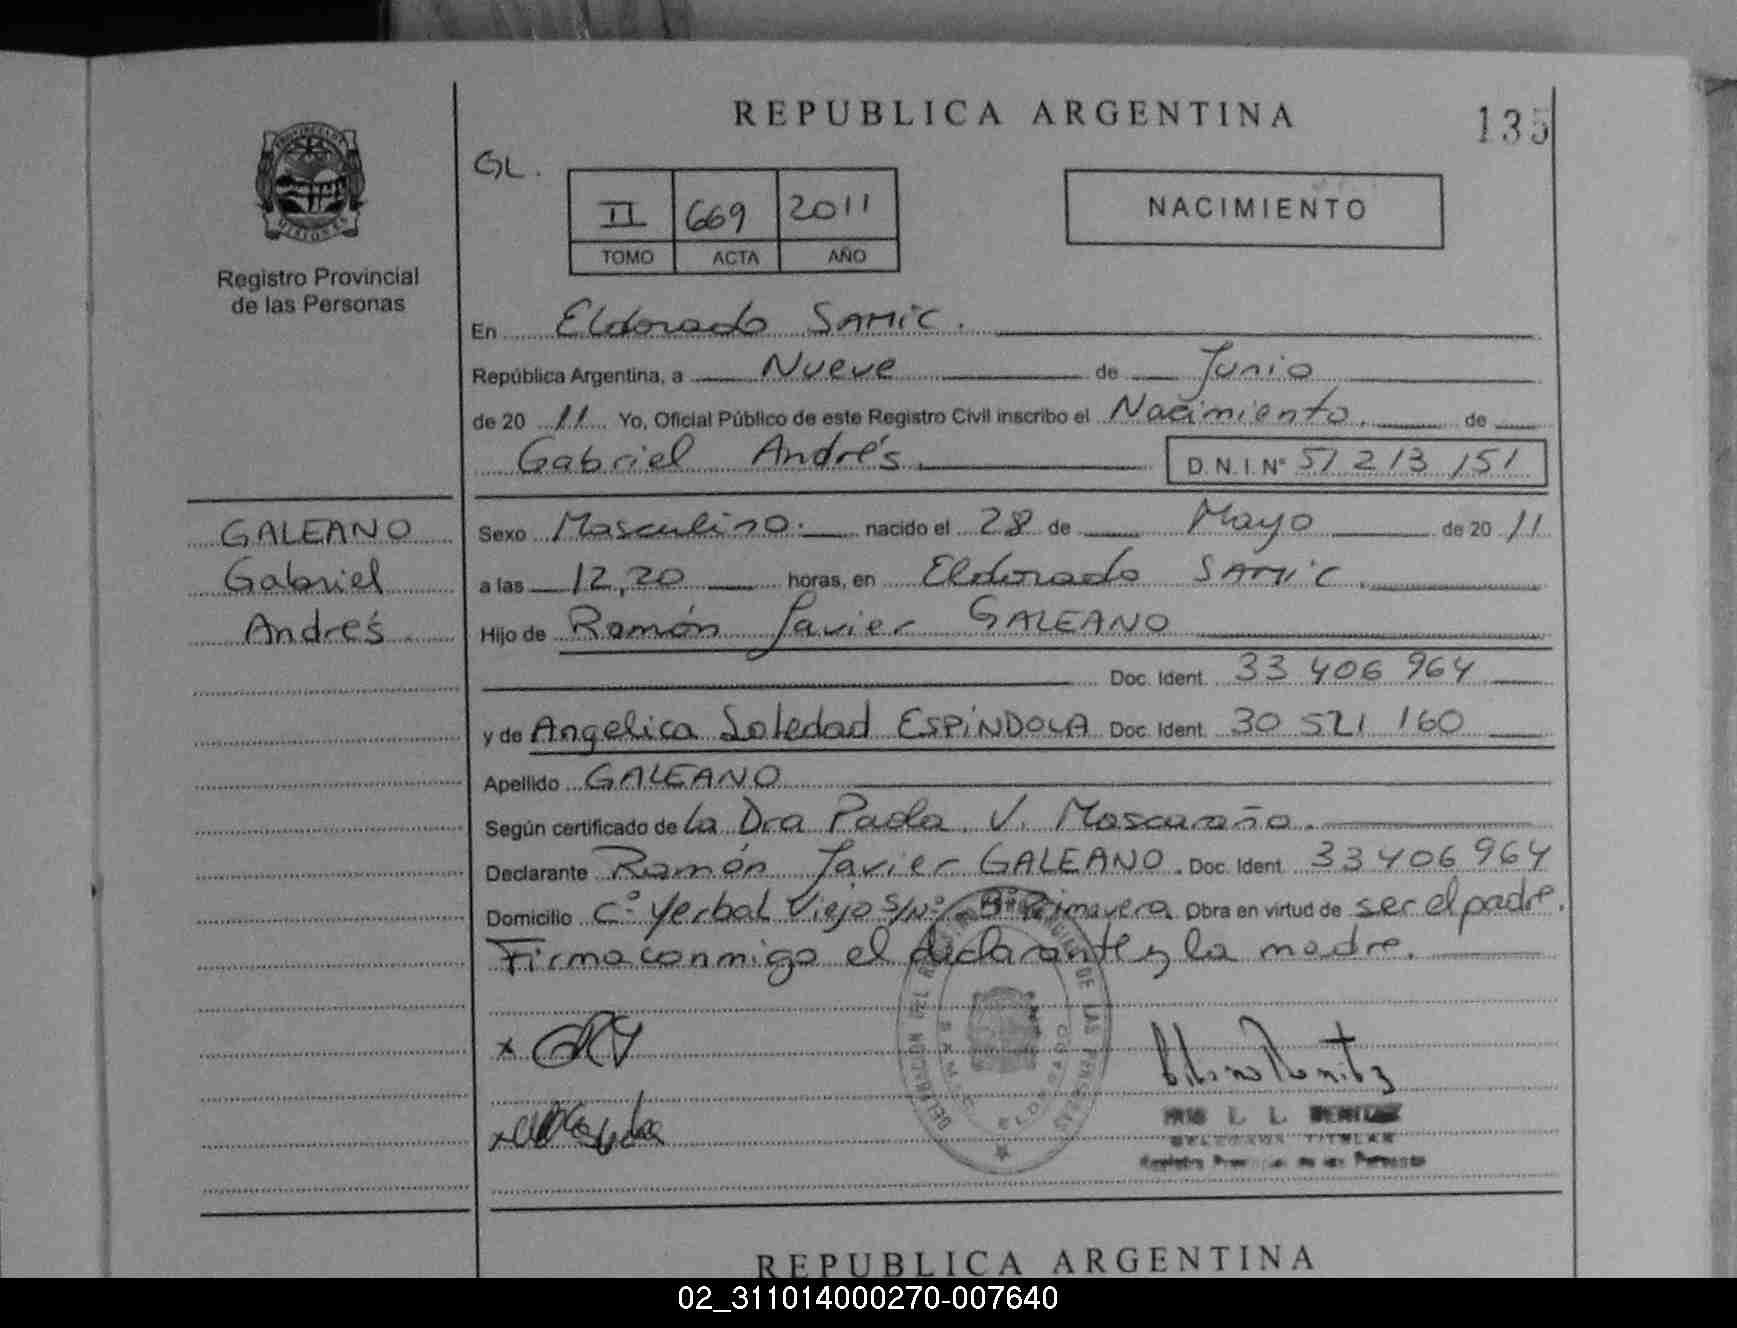 REPUBLICA ARGENTINA
135
GL.
II 669 2011
TOMO ACTA AÑO
NACIMIENTO
Registro Provincial
de las Personas
En Eldorado SAMIC.
República Argentina, a Nueve de Junio
de 20 11 Yo, Oficial Público de este Registro Civil inscribo el Nacimiento. de
Gabriel Andrés. D.N.I. Nº 51 213 151
GALEANO
Gabriel
Andrés.
Sexo Masculino. nacido el 28 de Mayo de 20 11
a las 12,20 horas, en Eldorado SAMIC.
Hijo de Ramón Javier GALEANO
Doc. Ident. 33 406 964
y de Angelica Soledad ESPINDOLA Doc. Ident. 30 521 160
Apellido GALEANO
Según certificado de la Dra Paola V. Moscaraño.
Declarante Ramón Javier GALEANO. Doc. Ident. 33 406 964
Domicilio Cº Yerbal Viejo S/Nº Bº Primavera Obra en virtud de ser el padre.
Firma conmigo el declarante y la madre.
DELEGACION
DE LAS PERSONAS
L. L. BENITEZ
TITULAR
Registro Provincial de las Personas
REPUBLICA ARGENTINA
02_311014000270-007640